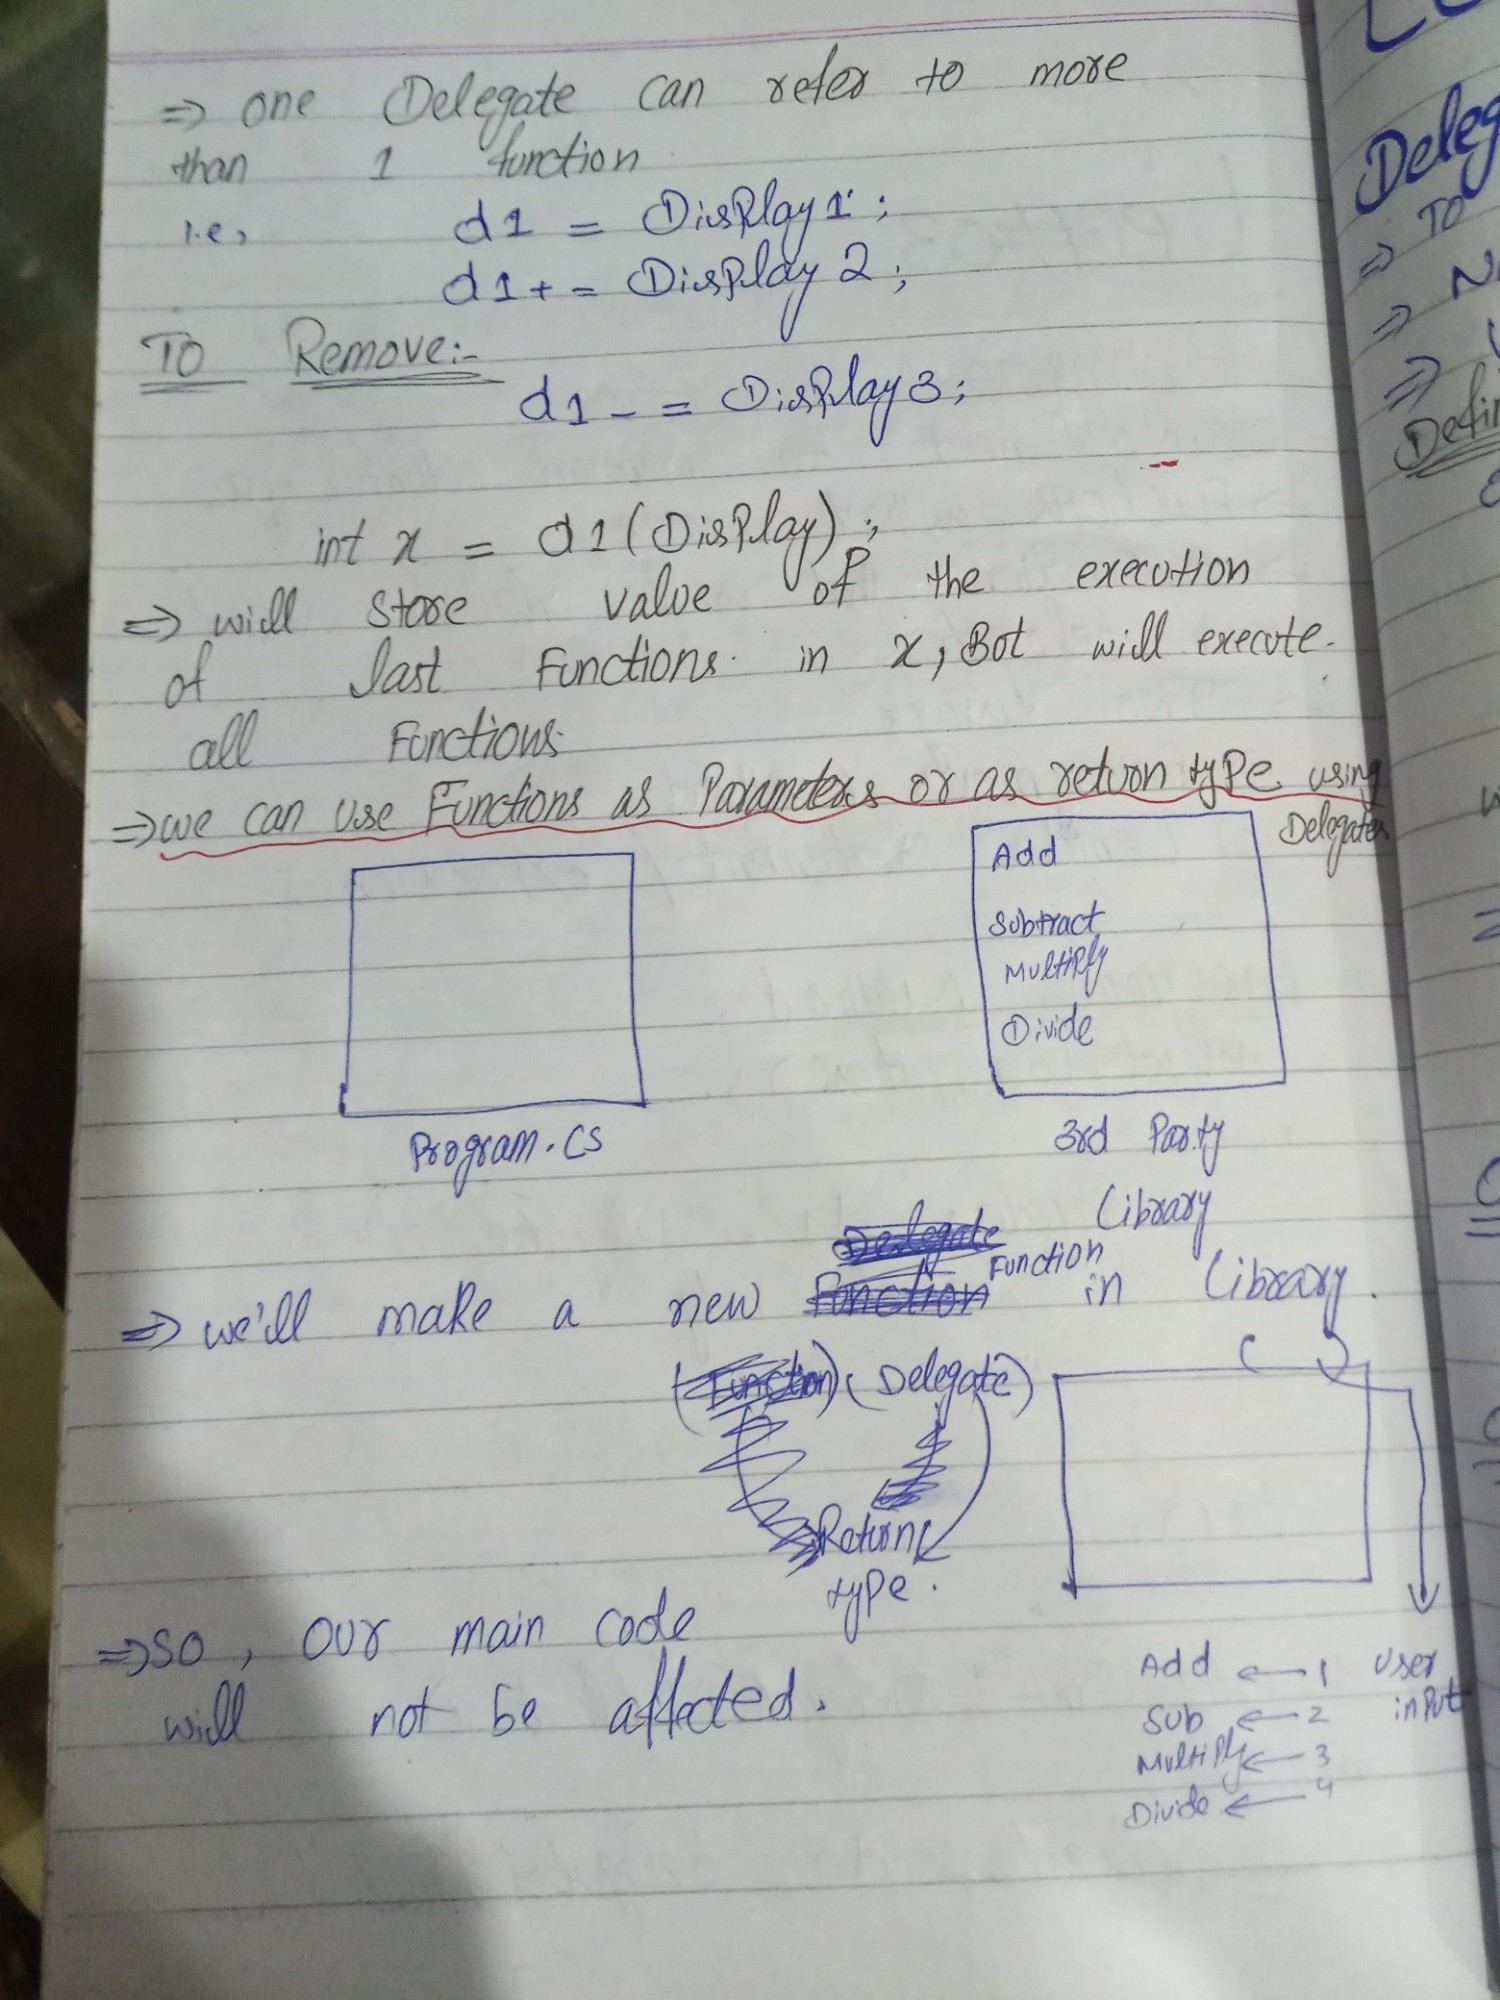 ⇒ one Delegate can refer to more
than 1 function
i.e, d1 = Display1;
d1+= Display2;
To Remove:-
d1-= Display3;
int x = d1(Display);
⇒ will store value of the execution
of last Functions in x, But will execute
all Functions
⇒ we can use Functions as Parameters or as return type using
Delegates
Add
Subtract
Multiply
Divide
Program.cs
3rd Party
Library
Delegate
Function
⇒ we'll make a new Function in Library.
(Function) (Delegate)
Return
type.
⇒ So, our main code
will not be affected.
Add ← 1 user
Sub ← 2 input
Multiply ← 3
Divide ← 4
Deleg
⇒ To
⇒
⇒
Defin